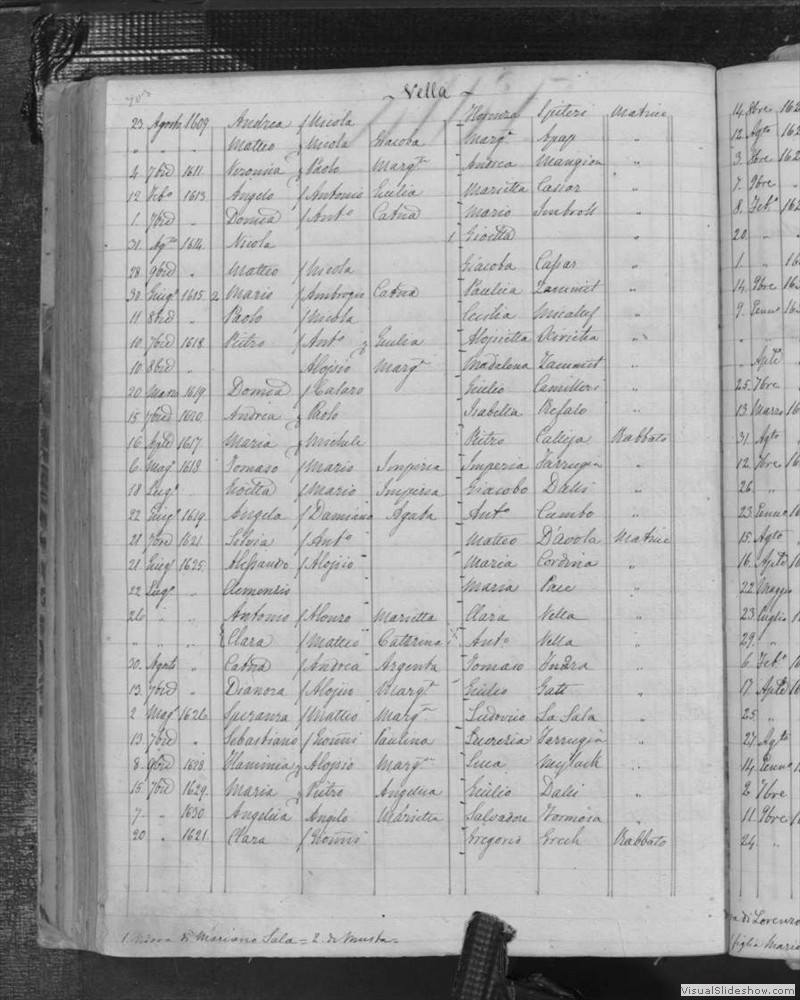 - Vella -
23 Agosto 1609 Andrea f Nicola Honora Spiteri Matrice
" " " Matteo f Nicola Giacoba Marg.a Apap "
4 7bre 1611 Veronica f Paolo Marg.ta Andrea Mangion "
12 Feb.o 1613 Angelo f Antonio Giulia Marietta Cassar "
1 7bre " Domca f Ant.o Catna Mario Imbroll "
31 Ag.to 1614 Nicola 1 Gioetta "
28 9bre " Matteo f Nicola Giacoba Cassar "
30 Giug.o 1615 2 Mario f Ambrogio Catna Paulica Zammit "
11 8bre " Paolo f Nicola Cecilia Micalef "
10 7bre 1618 Pietro f Ant.o Giulia "
10 8bre " Alojsio Marg.a Madalena Zammit "
20 Marzo 1619 Domca f Calaro Giulio Camilleri "
15 7bre 1620 Andrea f Paolo Isabella Refalo "
16 Aple 1617 Maria f Michele Pietro Calleja Rabbato
6 Mag.o 1618 Tomaso f Mario Imperia Imperia Farrugia "
18 Lug.o Gioetta f Mario Imperia Giacobo Dalli "
22 Giug.o 1619 Angela f Damiano Agata Ant.o Cumbo "
21 7bre 1621 Silvia f Ant.o Matteo D'avola Matrice
21 Giug.o 1625 Alessandro f Alojsio Maria Cordina "
22 Lug.o " Clemenzio Maria Pace "
26 " " Antonio f Alonzo Marietta Clara Vella "
" " " Clara f Matteo Caterina Ant.o Vella "
20 Agosto " Catna f Andrea Argenta Tomaso "
13 7bre " Dianora f Alojsio Marg.ta Giulio Gatt "
2 Mag.o 1626 Speranza f Matteo Marg.a Ludovico La Sala "
13 7bre " Sebastiano f Gionni Paulina Lucrezia Farrugia "
8 9bre 1628 Flaminia f Alojsio Marg.a Luca "
15 7bre 1629 Maria f Pietro Angelica Giulio Dalli "
7 " 1630 Angelica f Angelo Marietta Salvadore Formosa "
20 " 1621 Clara f Gionni Gregorio Grech Rabbato
1. Vedova di Mariano Sala = 2. di Musta =
14. 8bre 162
12 Agto 162
3. 8bre 162
7. 9bre "
8. Feb.o 162
20. "
1. "
14. 9bre
9. Genn.o
" Aple
25. 7bre
13. Marzo
31. Agto
12. 7bre
26 "
23. Genn.o
15. Agto
16. Aple
22. Maggio
23. Luglio
29. "
6. Feb.o
17. Aple
25. "
27. Agto
14. Genn.o
2. 7bre
11. 9bre
24. "
di Lorenzo
figlia Maria
VisualSlideshow.com